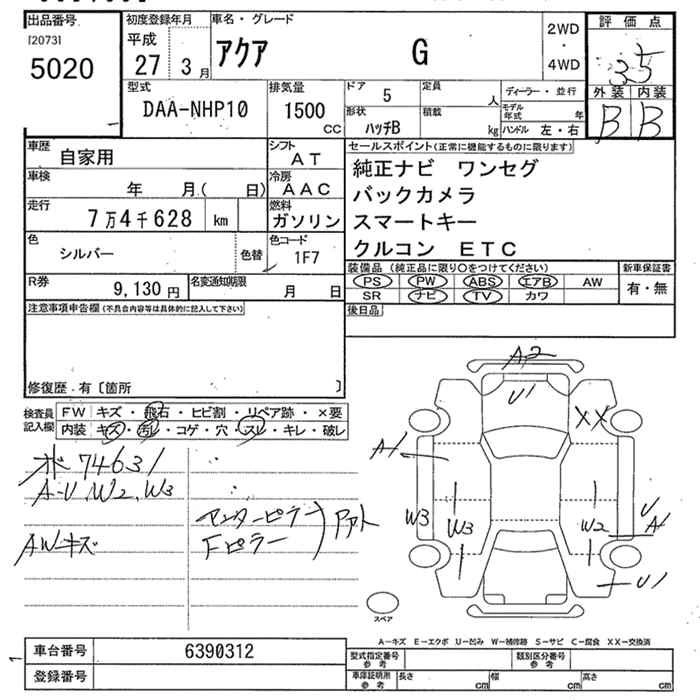 出品番号 初度登録年月 車名・グレード 評価点
[2073] 平成
5020 27 3月 アクア G 2WD・4WD 3.5
型式 排気量 ドア 定員 ディーラー・並行 外装 内装
DAA-NHP10 1500 CC 5 人 モデル年式 年 B B
形状 ハッチB 積載 kg ハンドル 左・右
車歴 自家用 シフト AT セールスポイント(正常に機能するものに限ります)
車検 年 月( 日) 冷房 AAC 純正ナビ ワンセグ
バックカメラ
走行 7万4千628 km 燃料 ガソリン スマートキー
色 シルバー 色替 色コード 1F7 クルコン ETC
R券 9,130円 名変通知期限 月 日 装備品(純正品に限り○をつけてください) 新車保証書
PS PW ABS エアB AW 有・無
SR ナビ TV カワ
注意事項申告欄(不具合内容等は具体的に記入して下さい) 後日品
修復歴・有〔箇所 〕
検査員記入欄 FW キズ・飛石・ヒビ割・リペア跡・×要
内装 キズ・汚れ・コゲ・穴・スレ・キレ・破レ
74631
A-U, W2, W3
AWキズ
センターピラー
Fピラー
A2
U1
XX
A1
W3
W3
W2
U
A1
U1
スペア
A-キズ E-エクボ U-凹み W-補修跡 S-サビ C-腐食 XX-交換済
車台番号 6390312 型式指定番号 参考 類別区分番号 参考
登録番号 車庫証明所 参考 長さ cm 幅 cm 高さ cm